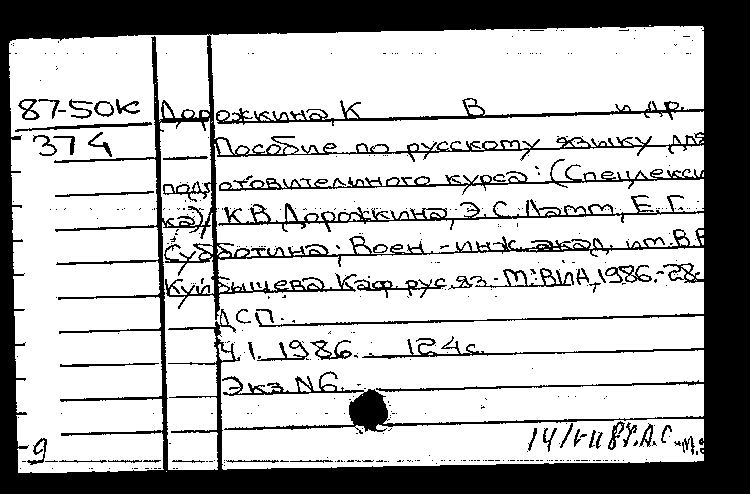 87-50к Дорожкина, К В и др.
374 Пособие по русскому языку для
подготовительного курса: (Спецлекси
ка)/ К.В.Дорожкина, Э.С.Латт, Е.Г.
Субботина; Воен.-инж.акад. им.В.В
Куйбышева. Каф.рус.яз.-М:ВИА,1986.-28
ДСП..
Ч.1. 1986. 124с.
Экз.N6.
14/VII 87. А.С.
-9